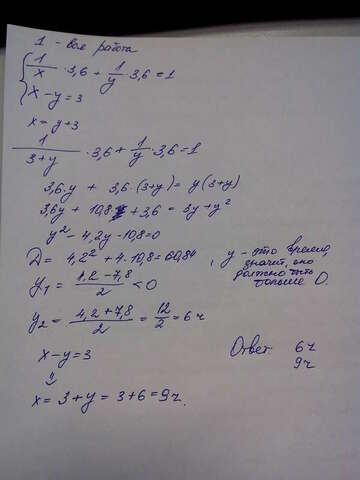 1 - вся работа
1/x · 3,6 + 1/y · 3,6 = 1
x - y = 3
x = y + 3
1/(3+y) · 3,6 + 1/y · 3,6 = 1
3,6·y + 3,6·(3+y) = y(3+y)
3,6y + 10,8 + 3,6 = 3y + y²
y² - 4,2y - 10,8 = 0
D = 4,2² + 4·10,8 = 60,84
y₁ = (4,2 - 7,8)/2 < 0
, y - это время, значит, оно должно быть больше 0.
y₂ = (4,2 + 7,8)/2 = 12/2 = 6 ч
x - y = 3
x = 3 + y = 3 + 6 = 9 ч.
Ответ 6 ч
9 ч